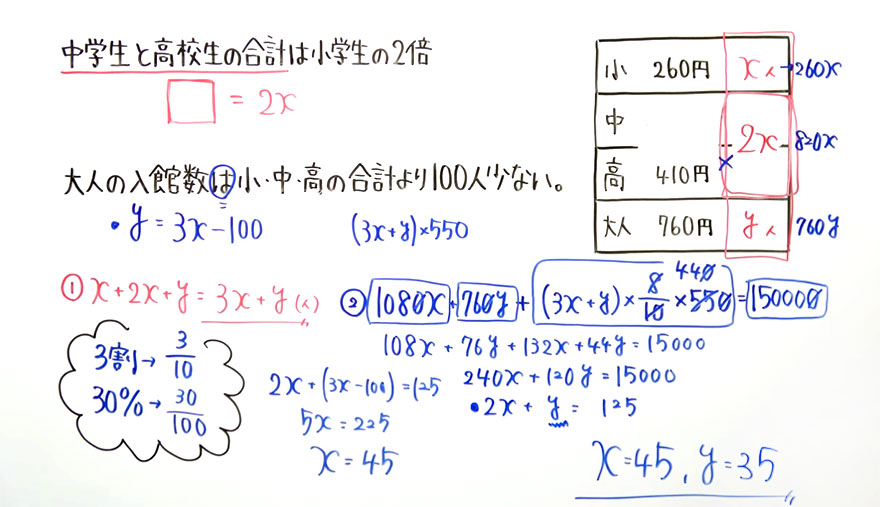 中学生と高校生の合計は小学生の2倍
□ = 2x
小 260円 x人 →260x
中
2x 820x
高 410円 ×
大人 760円 y人 760y
大人の入館数は小・中・高の合計より100人少ない。
・y = 3x-100 (3x+y)×550
① x+2x+y = 3x+y(人)
② 1080x + 760y + (3x+y) × 8/10 × 550 = 150000
440
3割→ 3/10
30%→ 30/100
108x + 76y + 132x + 44y = 15000
240x + 120y = 15000
・2x + y = 125
2x + (3x-100) = 125
5x = 225
x = 45
x=45, y=35